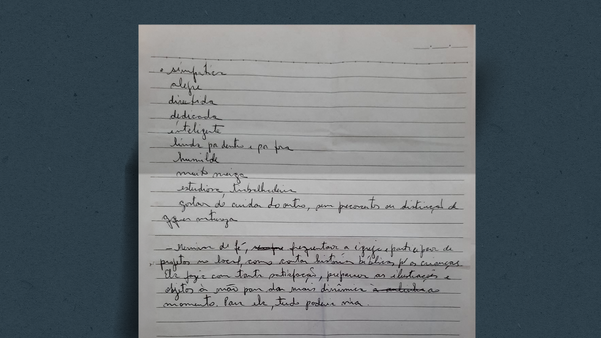 simpática
alegre
divertida
dedicada
inteligente
linda por dentro e por fora
humilde
muito meiga
estudiosa, trabalhadora
gostar de cuidar do outro, sem preconceitos ou distinção de
qquer natureza
- menina de fé, frequentava a igreja e participava de
projetos no local, como contar histórias bíblicas p/ as crianças.
Ela fazia com tanta satisfação, preparava as ilustrações e
objetos à mão para dar mais dinâmica ao
momento. Para ela, tudo poderia virar